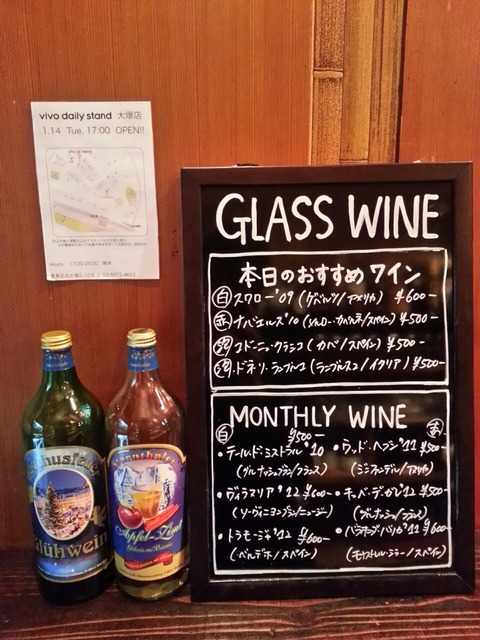 vivo daily stand 大塚店
1.14 Tue. 17:00 OPEN!!
Hours: 17:00-26:00 無休
GLASS WINE
本日のおすすめワイン
白 スワロー'09 (ゲバルツ/アメリカ) ¥600-
赤 ナバエルズ'10 (シャルロー・カベルネ/スペイン) ¥500-
泡 コドーニュ・クラシコ (カバ/スペイン) ¥500-
泡 ドネリ・ランブルコ (ランブルスコ/イタリア) ¥500-
MONTHLY WINE
白 赤
・テールド・ミストラル'10 ¥500-
(グルナッシュブラン/フランス)
・ウッド・ヘブン'11 ¥500-
(ジンファンデル/アメリカ)
・ヴィラマリア'12 ¥600-
(ソーヴィニヨンブラン/ニュージー)
・キュベ・デガレ'12 ¥500-
(グルナッシュ/フランス)
・ドラモージャ'12 ¥600-
(ベルデホ/スペイン)
・パラホンダ・バリカ'11 ¥600-
(モナストレル・シラー/スペイン)
Glühwein
Apfel-Zimt